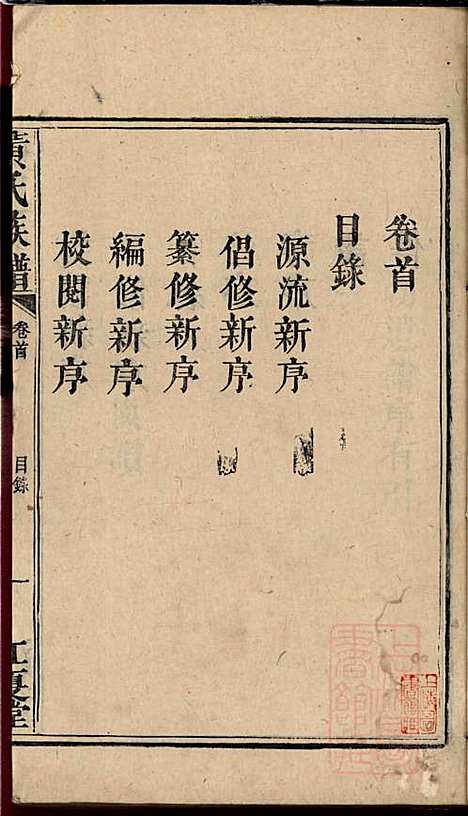 卷首
目錄
源流新序
倡修新序
纂修新序
編修新序
校閱新序
黃氏族譜
卷首
目錄
一
江夏堂